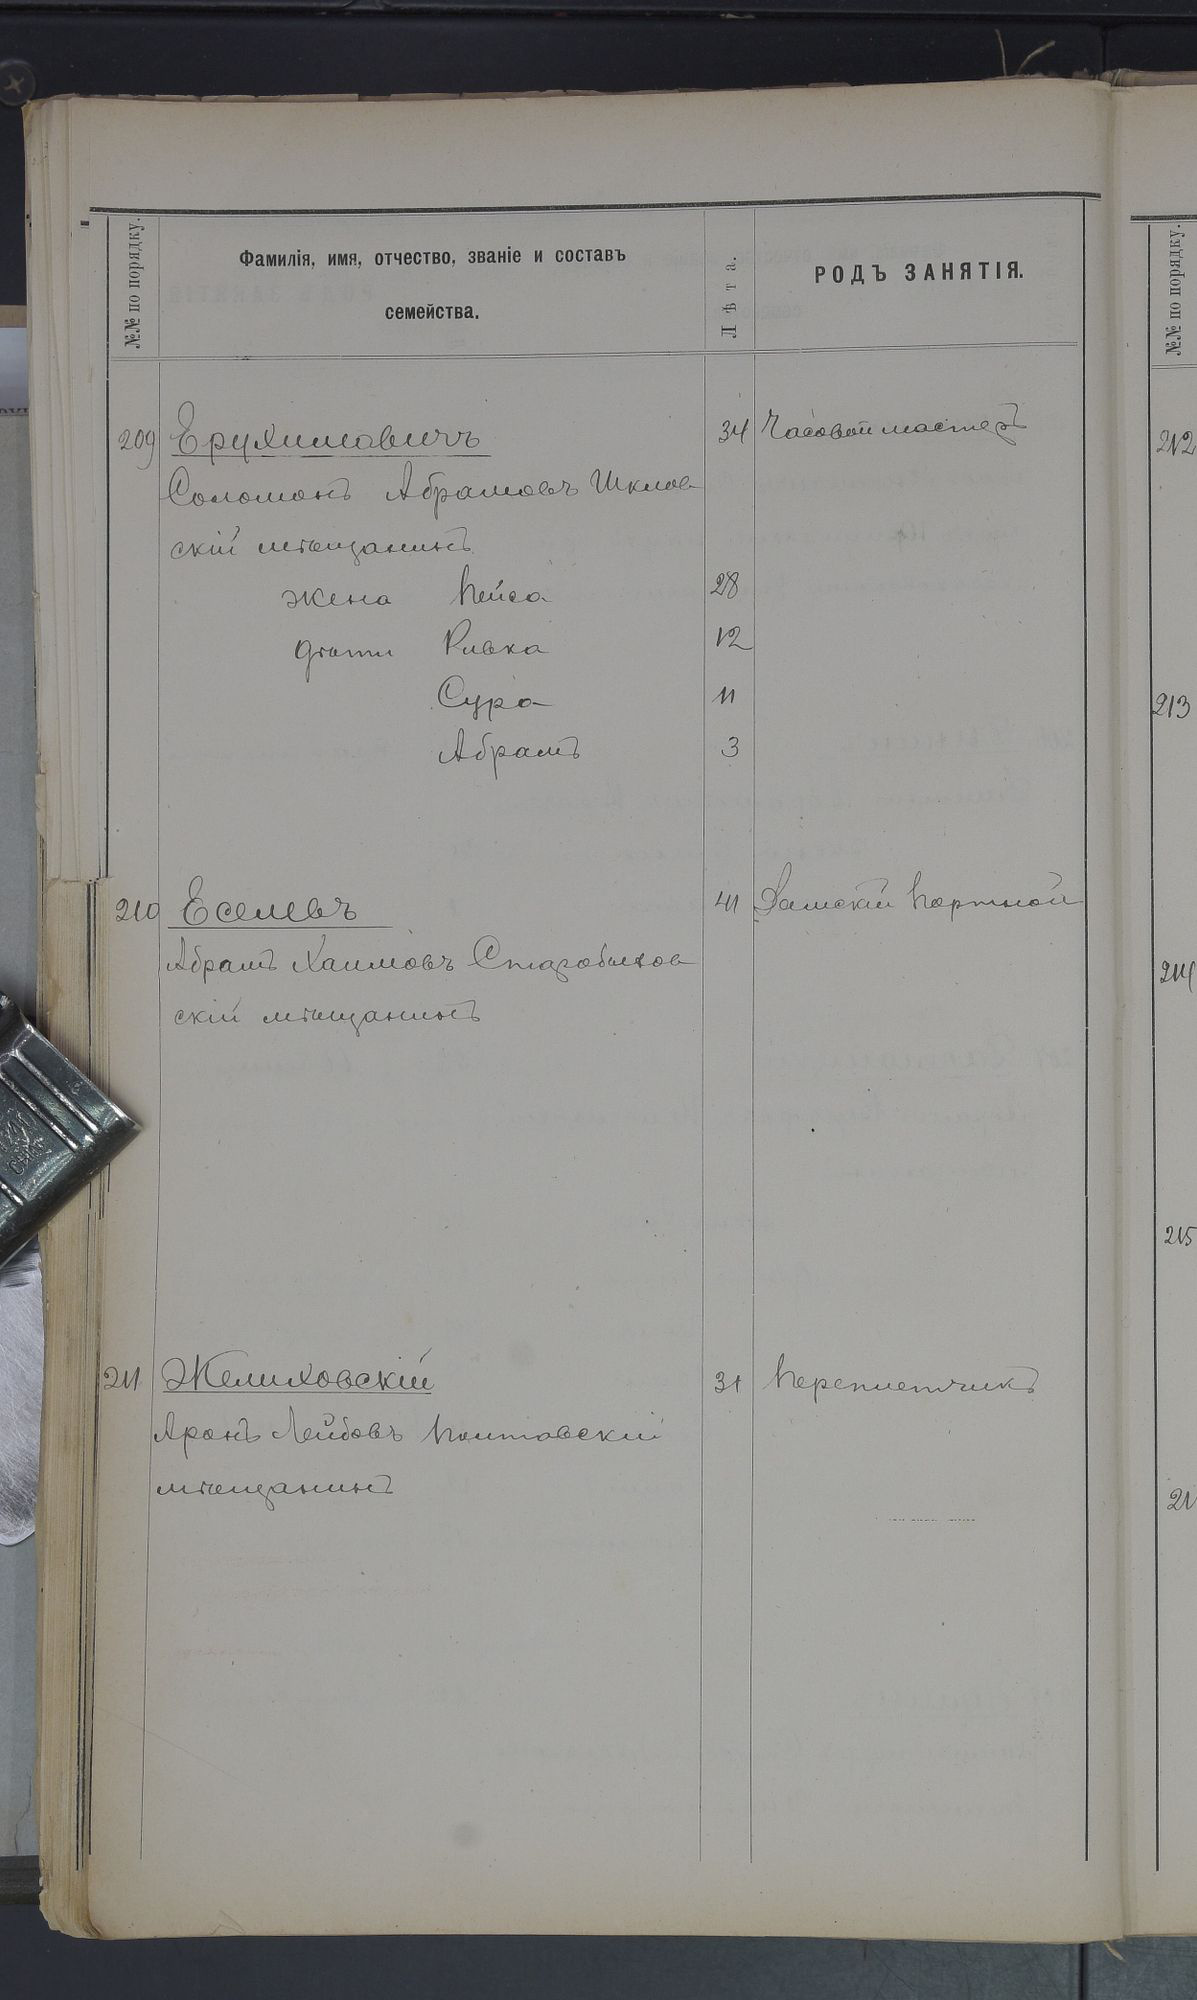 №№ по порядку.
Фамилія, имя, отчество, званіе и составъ
семейства.
Лѣта.
РОДЪ ЗАНЯТІЯ.
№№ по порядку.
209 Ерухимовичъ 34 Часовой мастеръ
Соломонъ Абрамовъ Шклов
скій мѣщанинъ
жена Пейса 28
дѣти Ривка 12
Сура 11
Абрамъ 3
210 Еселевъ 41 Дамскій портной
Абрамъ Хаимовъ Старобыхов
скій мѣщанинъ
211 Желиховскій 31 Переплетчикъ
Аронъ Лейбовъ Полтавскій
мѣщанинъ
212
213
214
215